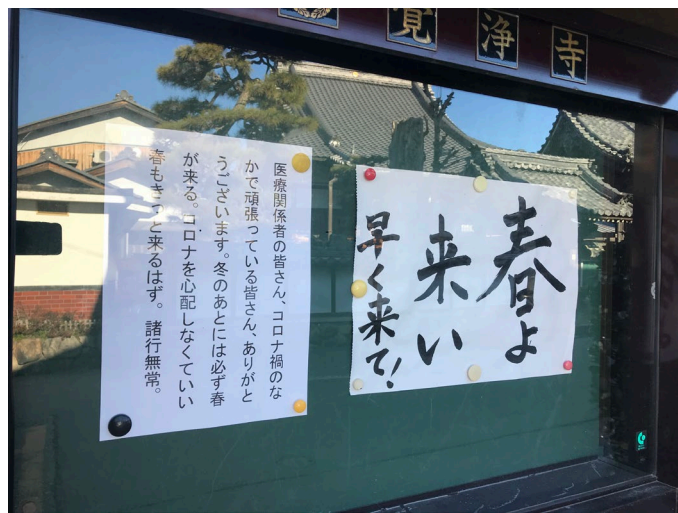 覚浄寺
春よ
来い
早く来て!
医療関係者の皆さん、コロナ禍のな
かで頑張っている皆さん、ありがと
うございます。冬のあとには必ず春
が来る。コロナを心配しなくていい
春もきっと来るはず。諸行無常。